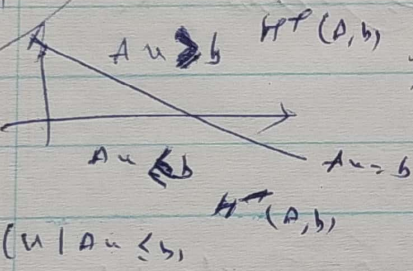 Au ≥ b
H⁺(A,b)
Au ≤ b
Au = b
H⁻(A,b)
(u | Au ≤ b,